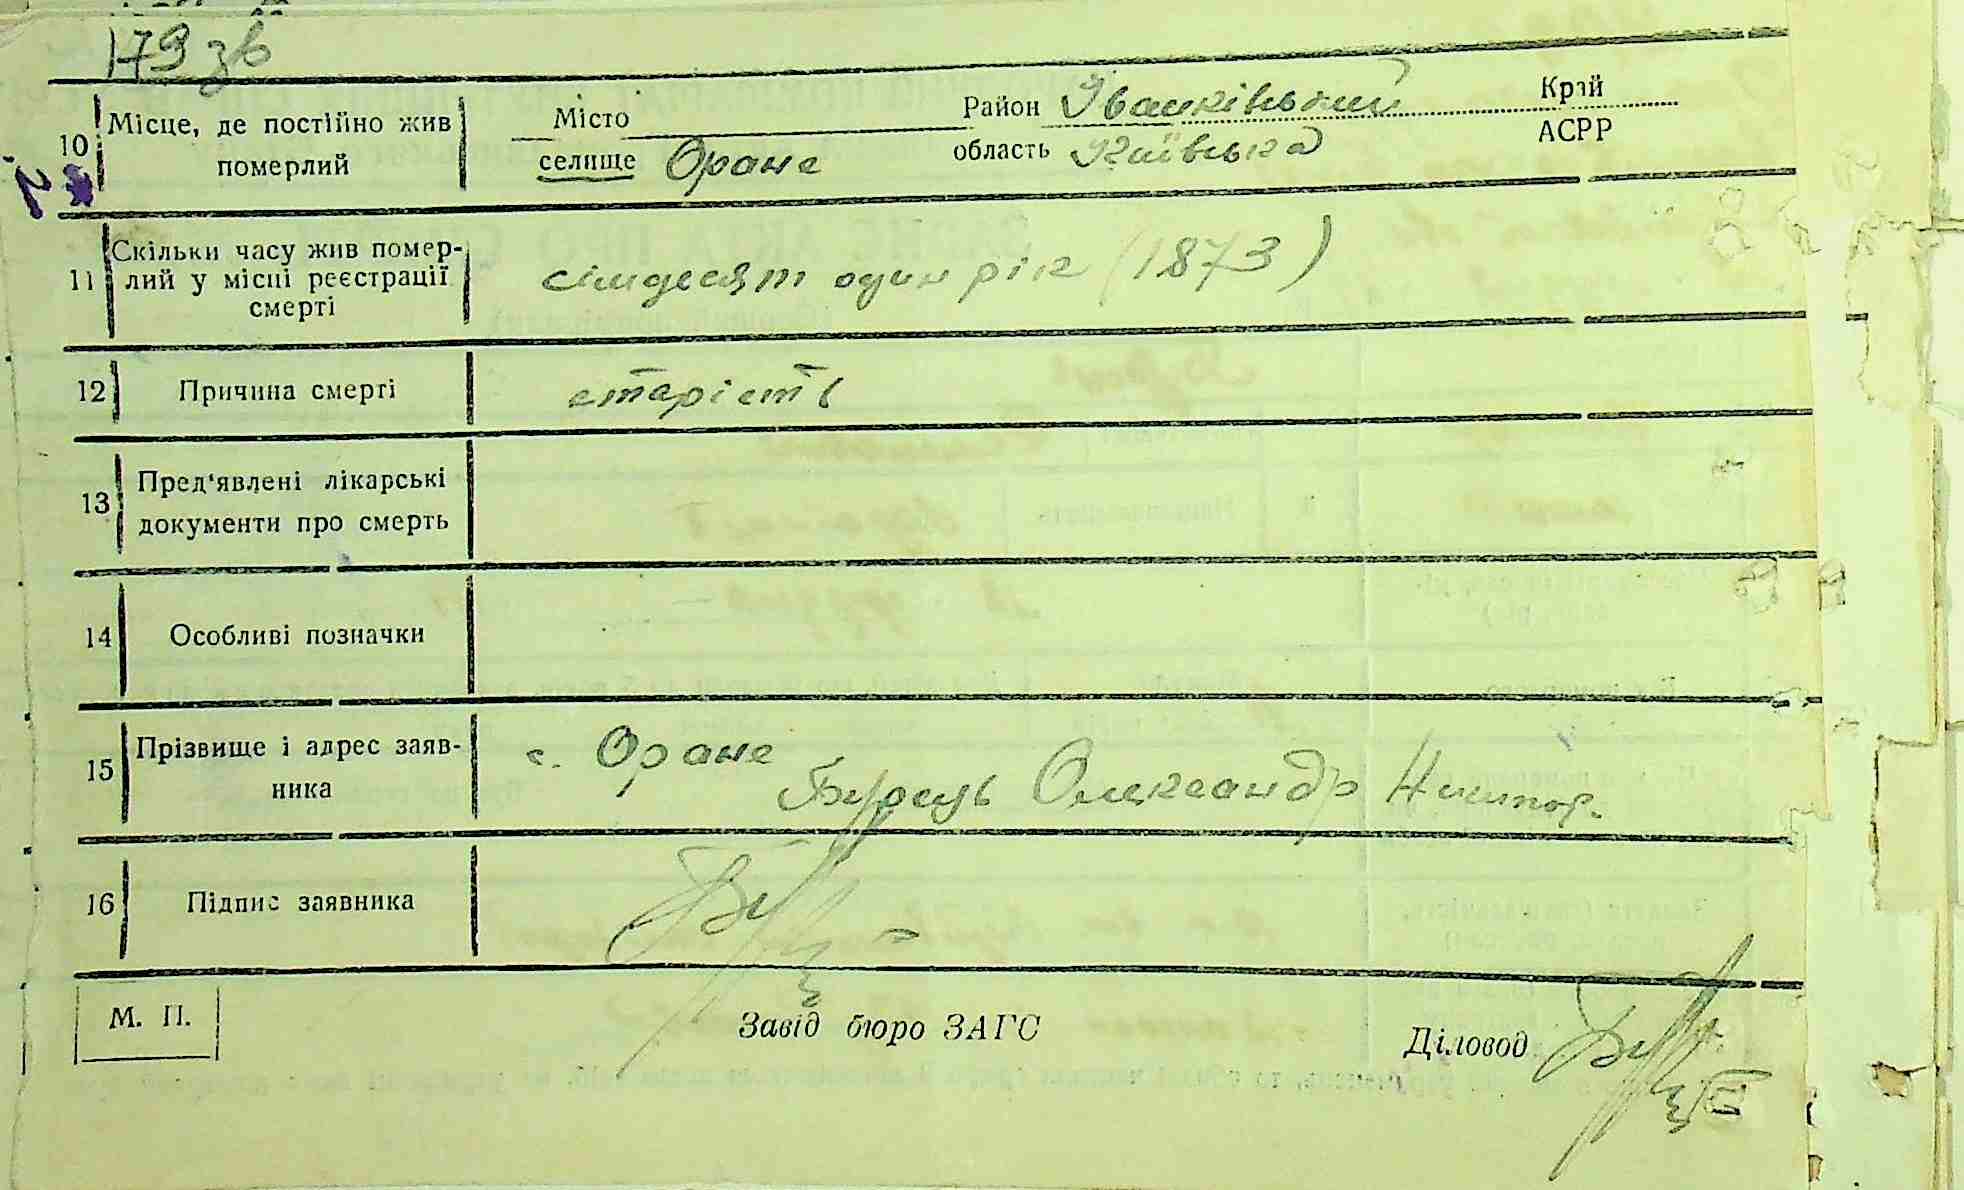 179 зв
10 Місце, де постійно жив померлий
Місто Район Іванківський Край
селище Оране область Київська АСРР
11 Скільки часу жив помер-
лий у місці реєстрації
смерті
сімдесят один рік (1873)
12 Причина смерті старість
13 Пред'явлені лікарські
документи про смерть
14 Особливі позначки
15 Прізвище і адрес заяв-
ника
с. Оране
Бурець Олександр Никипор.
16 Підпис заявника
М. П. Завід бюро ЗАГС Діловод